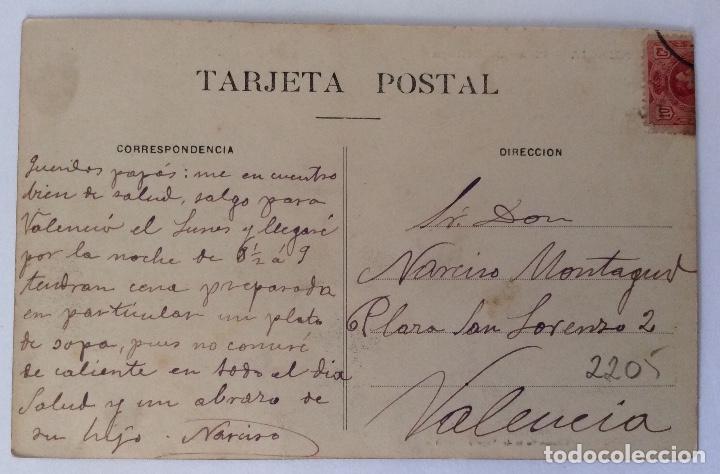 TARJETA POSTAL
CORRESPONDENCIA
Queridos papás: me encuentro
bien de salud, salgo para
Valenció el Lunes y llegaré
por la noche de 8 1/2 á 9
tendran cena preparada
en particular un plato
de sopa, pues no comeré
de caliente en todo el dia
Salud y un abrazo de
su hijo - Narciso
DIRECCION
Sr. Don
Narciso Montagud
Plaza San Lorenzo 2
2205
Valencia
todocoleccion.net